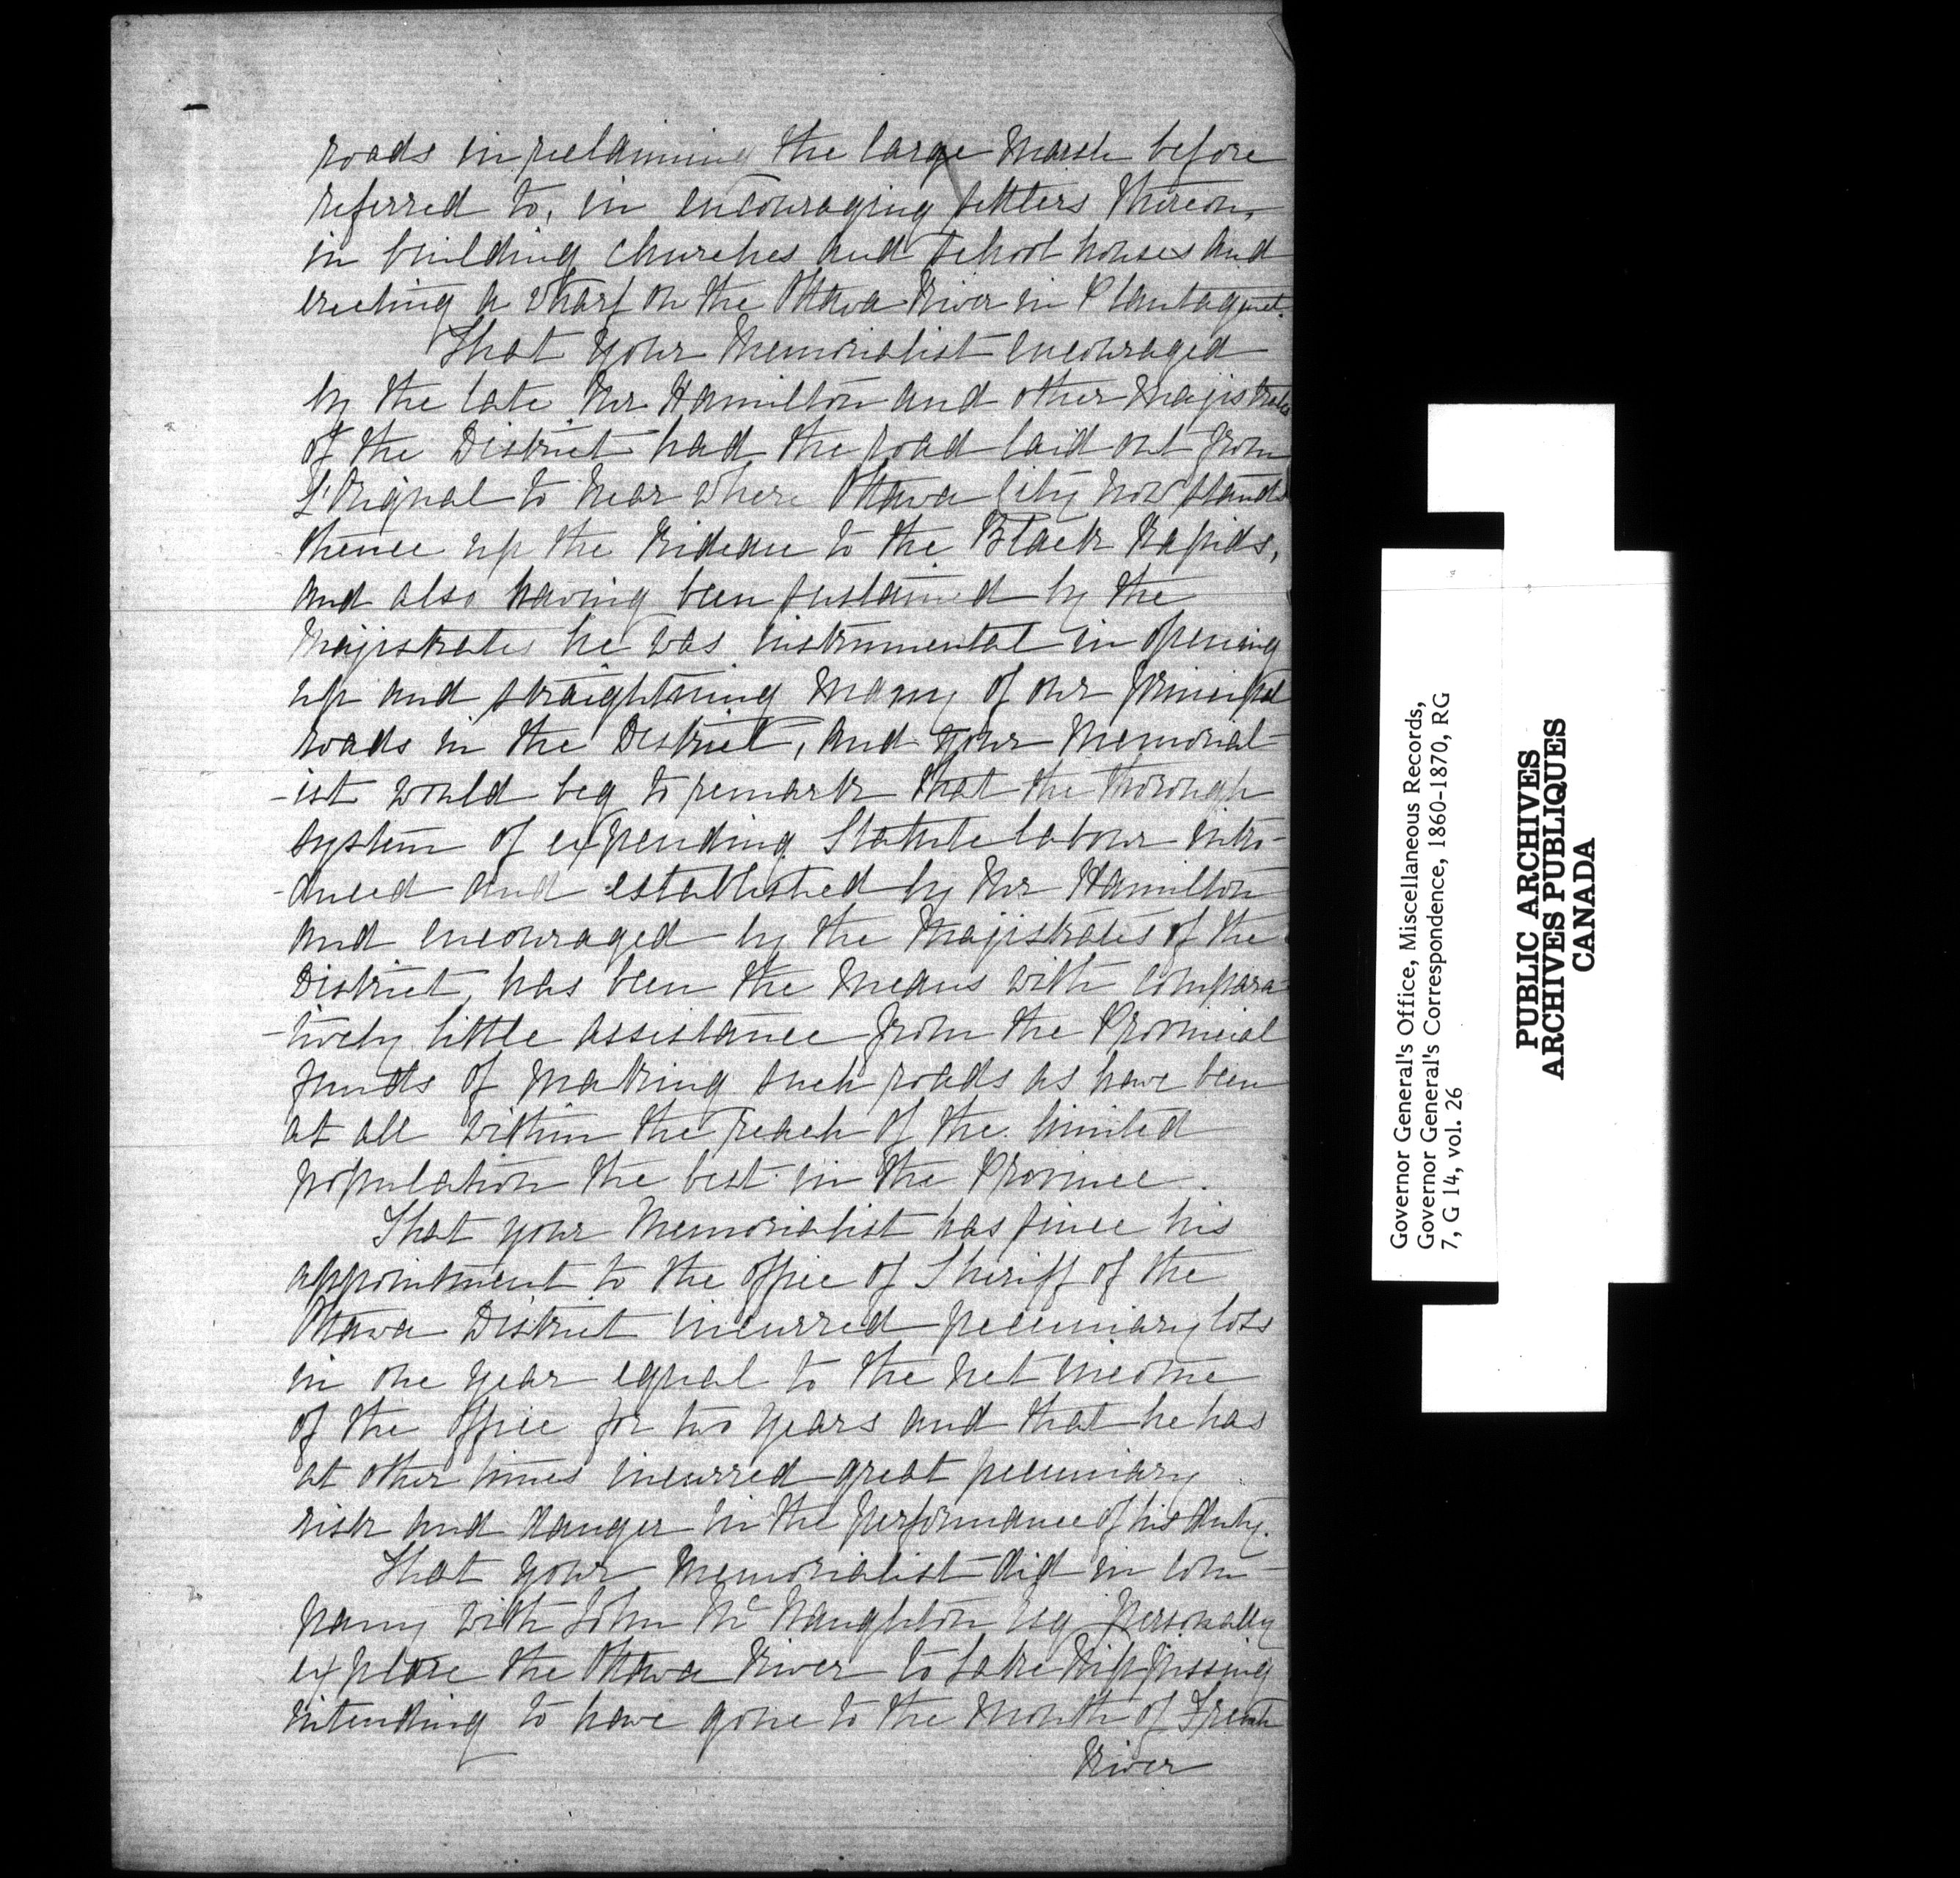 roads in reclaiming the large Marsh before
referred to, in encouraging settlers thereon,
in building churches and school houses and
erecting a wharf on the Ottawa River in Plantagenet.
That your Memorialist encouraged
by the late Mr Hamilton and other Magistrates
of the District had the road laid out from
L'Orignal to near where Ottawa City now stands
thence up the Rideau to the Black Rapids,
and also having been sustained by the
Magistrates he was instrumental in opening
up and straightning many of our principal
roads in the District, and your Memorial-
-ist would beg to remark that the thorough
system of expending Statute labour intro-
-duced and established by Mr Hamilton
and encouraged by the Magistrates of the
District, has been the means with compara-
-tively little assistance from the Provincial
funds of making such roads as have been
at all within the reach of the limited
population the best in the Province.
That your Memorialist has since his
appointment to the office of Sheriff of the
Ottawa District incurred pecuniary loss
in one year equal to the net income
of the office for two years and that he has
at other times incurred great pecuniary
risk and danger in the performance of his duty.
That your Memorialist did in com-
pany with John McNaughton Esq personally
explore the Ottawa River to Lake Nippissing
intending to have gone to the Mouth of French
River
Governor General's Office, Miscellaneous Records,
Governor General's Correspondence, 1860-1870, RG
7, G 14, vol. 26
PUBLIC ARCHIVES
ARCHIVES PUBLIQUES
CANADA